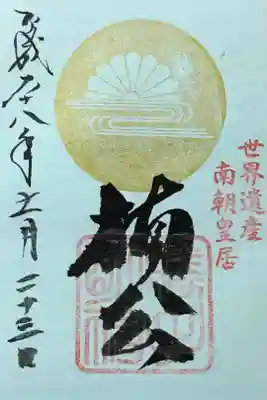 世界遺産
南朝皇居
楠公
平成二十八年十一月二十三日